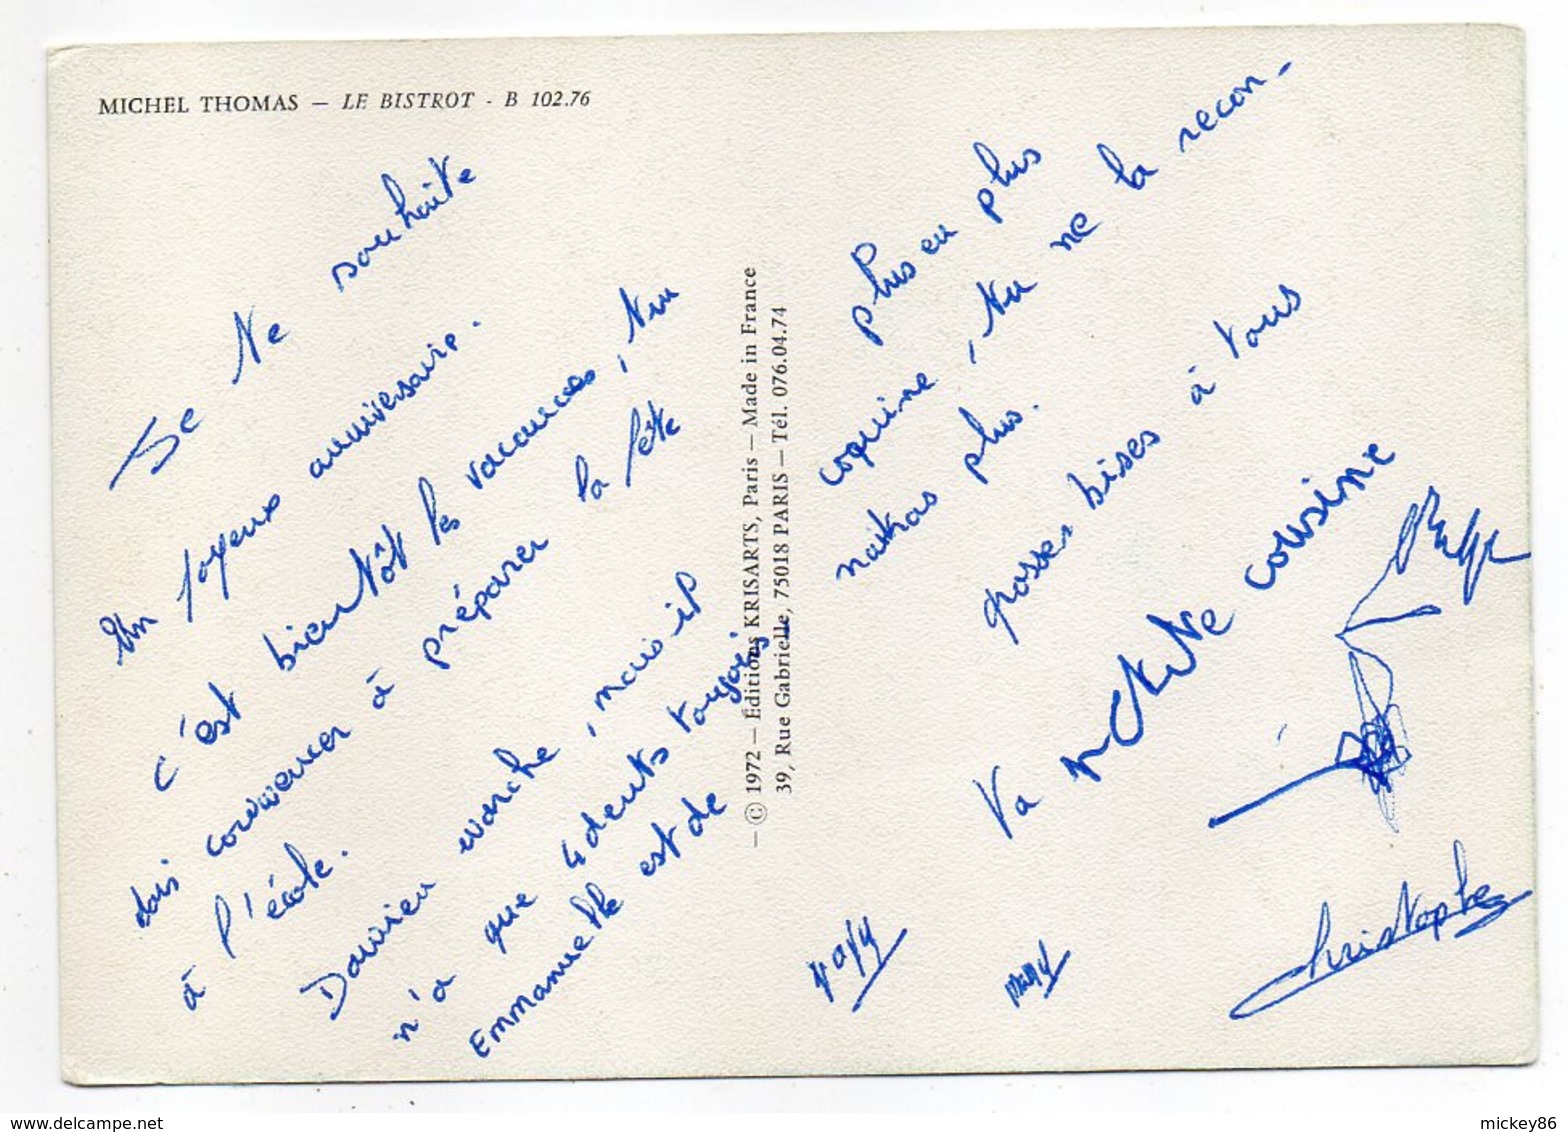 MICHEL THOMAS — LE BISTROT - B 102.76
Je te souhaite
un joyeux anniversaire.
c'est bientôt les vacances, tu
dois commencer à préparer la fête
à l'école.
Damien marche, mais il
n'a que 4 dents toujours
Emmanuelle est de
plus en plus
coquine, tu ne la recon-
naitras plus.
grosses bises à tous
Ta petite cousine
Christophe
— © 1972 — Éditions KRISARTS, Paris — Made in France
39, Rue Gabrielle, 75018 PARIS — Tél. 076.04.74
mickey86